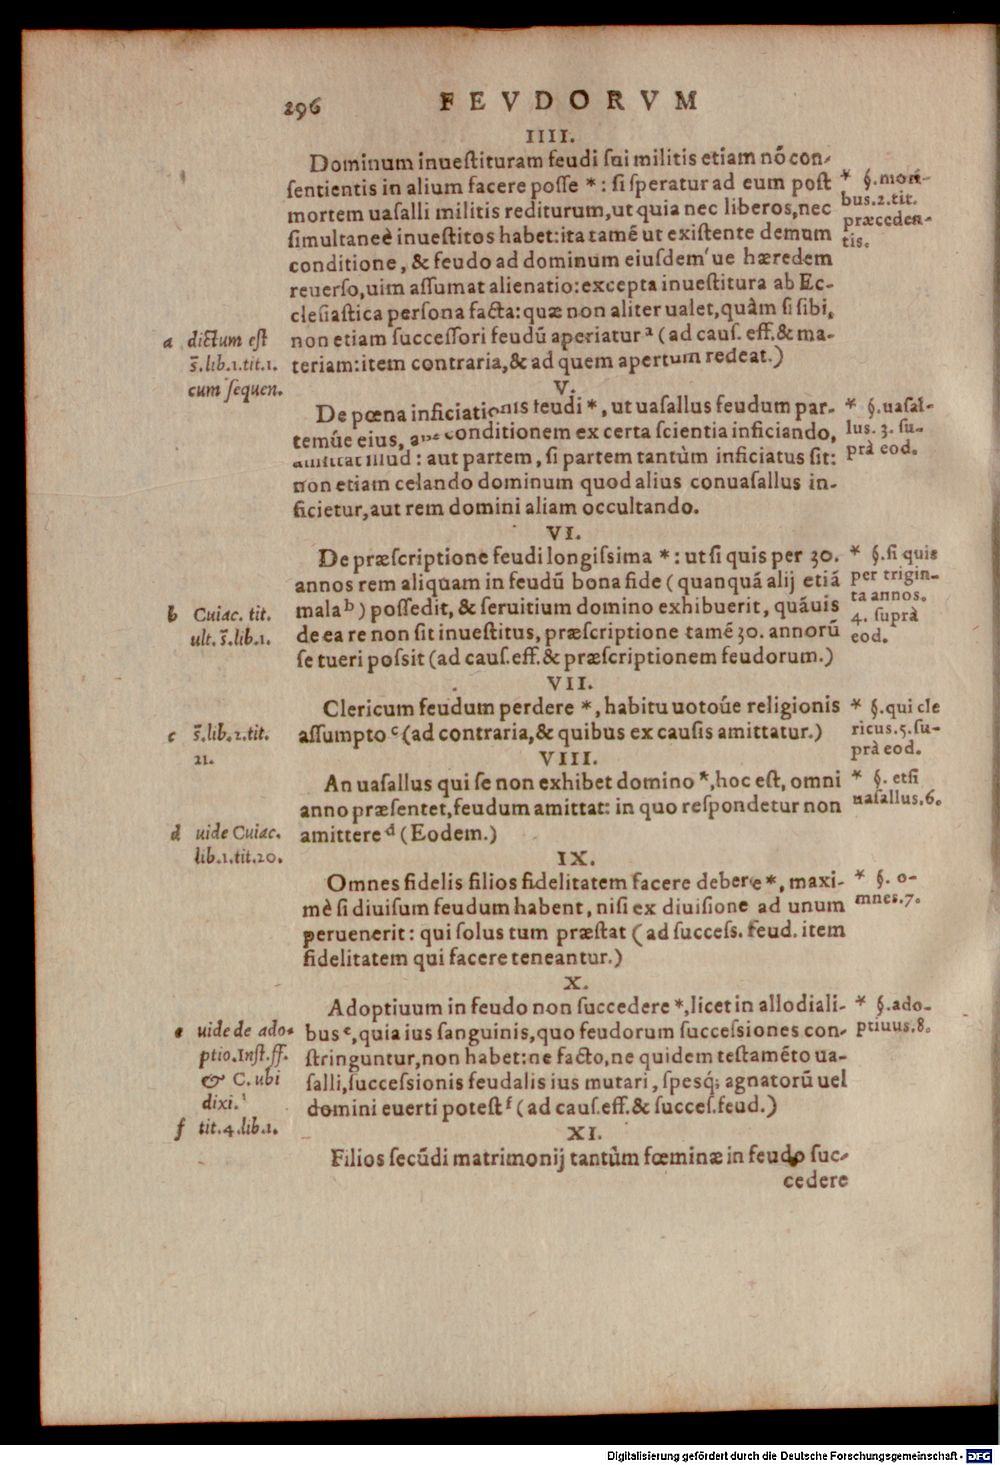 296 FEVDORVM
IIII.
Dominum inueſtituram feudi ſui militis etiam nõ con-
ſentientis in alium facere poſſe *: ſi ſperatur ad eum poſt
mortem uaſalli militis rediturum, ut quia nec liberos, nec
ſimultaneè inueſtitos habet: ita tamẽ ut exiſtente demum
conditione, & feudo ad dominum eiuſdem'ue hæredem
reuerſo, uim aſſumat alienatio: excepta inueſtitura ab Ec-
cleſiaſtica perſona facta: quæ non aliter ualet, quàm ſi ſibi,
non etiam ſucceſſori feudũ aperiatur ᵃ (ad cauſ. eff. & ma-
teriam: item contraria, & ad quem apertum redeat.)
* §. mori-
bus. 2. tit.
præceden-
tis.
a dictum eſt
s̃. lib. 1. tit. 1.
cum ſequen.
V.
De pœna inficiationis feudi *, ut uaſallus feudum par-
temúe eius, conditionem ex certa ſcientia inficiando,
amittat illud: aut partem, ſi partem tantùm inficiatus ſit:
non etiam celando dominum quod alius conuaſallus in-
ficietur, aut rem domini aliam occultando.
* §. uaſal-
lus. 3. ſu-
prà eod.
VI.
De præſcriptione feudi longiſsima *: ut ſi quis per 30.
annos rem aliquam in feudũ bona fide (quanquã alij etiã
mala ᵇ) poſſedit, & ſeruitium domino exhibuerit, quãuis
de ea re non ſit inueſtitus, præſcriptione tamẽ 30. annorũ
ſe tueri poſsit (ad cauſ. eff. & præſcriptionem feudorum.)
* §. ſi quis
per trigin-
ta annos.
4. ſuprà
eod.
b Cuiac. tit.
ult. s̃. lib. 1.
VII.
Clericum feudum perdere *, habitu uotoúe religionis
aſſumpto ᶜ (ad contraria, & quibus ex cauſis amittatur.)
* §. qui cle
ricus. 5. ſu-
prà eod.
c s̃. lib. 2. tit.
21.
VIII.
An uaſallus qui ſe non exhibet domino *, hoc eſt, omni
anno præſentet, feudum amittat: in quo reſpondetur non
amittere ᵈ (Eodem.)
* §. etſi
uaſallus. 6.
d uide Cuiac.
lib. 1. tit. 20.
IX.
Omnes fidelis filios fidelitatem facere debere *, maxi-
mè ſi diuiſum feudum habent, niſi ex diuiſione ad unum
peruenerit: qui ſolus tum præſtat (ad ſucceſs. feud. item
fidelitatem qui facere teneantur.)
* §. o-
mnes. 7.
X.
Adoptiuum in feudo non ſuccedere *, licet in allodiali-
bus ᵉ, quia ius ſanguinis, quo feudorum ſucceſsiones con-
ſtringuntur, non habet: ne facto, ne quidem teſtamẽto ua-
ſalli, ſucceſsionis feudalis ius mutari, ſpesq́; agnatorũ uel
domini euerti poteſt ᶠ (ad cauſ. eff. & ſucceſ. feud.)
* §. ado-
ptiuus. 8.
e uide de ado-
ptio. Inſt. ff.
& C. ubi
dixi.
f tit. 4. lib. 1.
XI.
Filios ſecũdi matrimonij tantùm fœminæ in feudo ſuc-
cedere
Digitalisierung gefördert durch die Deutsche Forschungsgemeinschaft - DFG